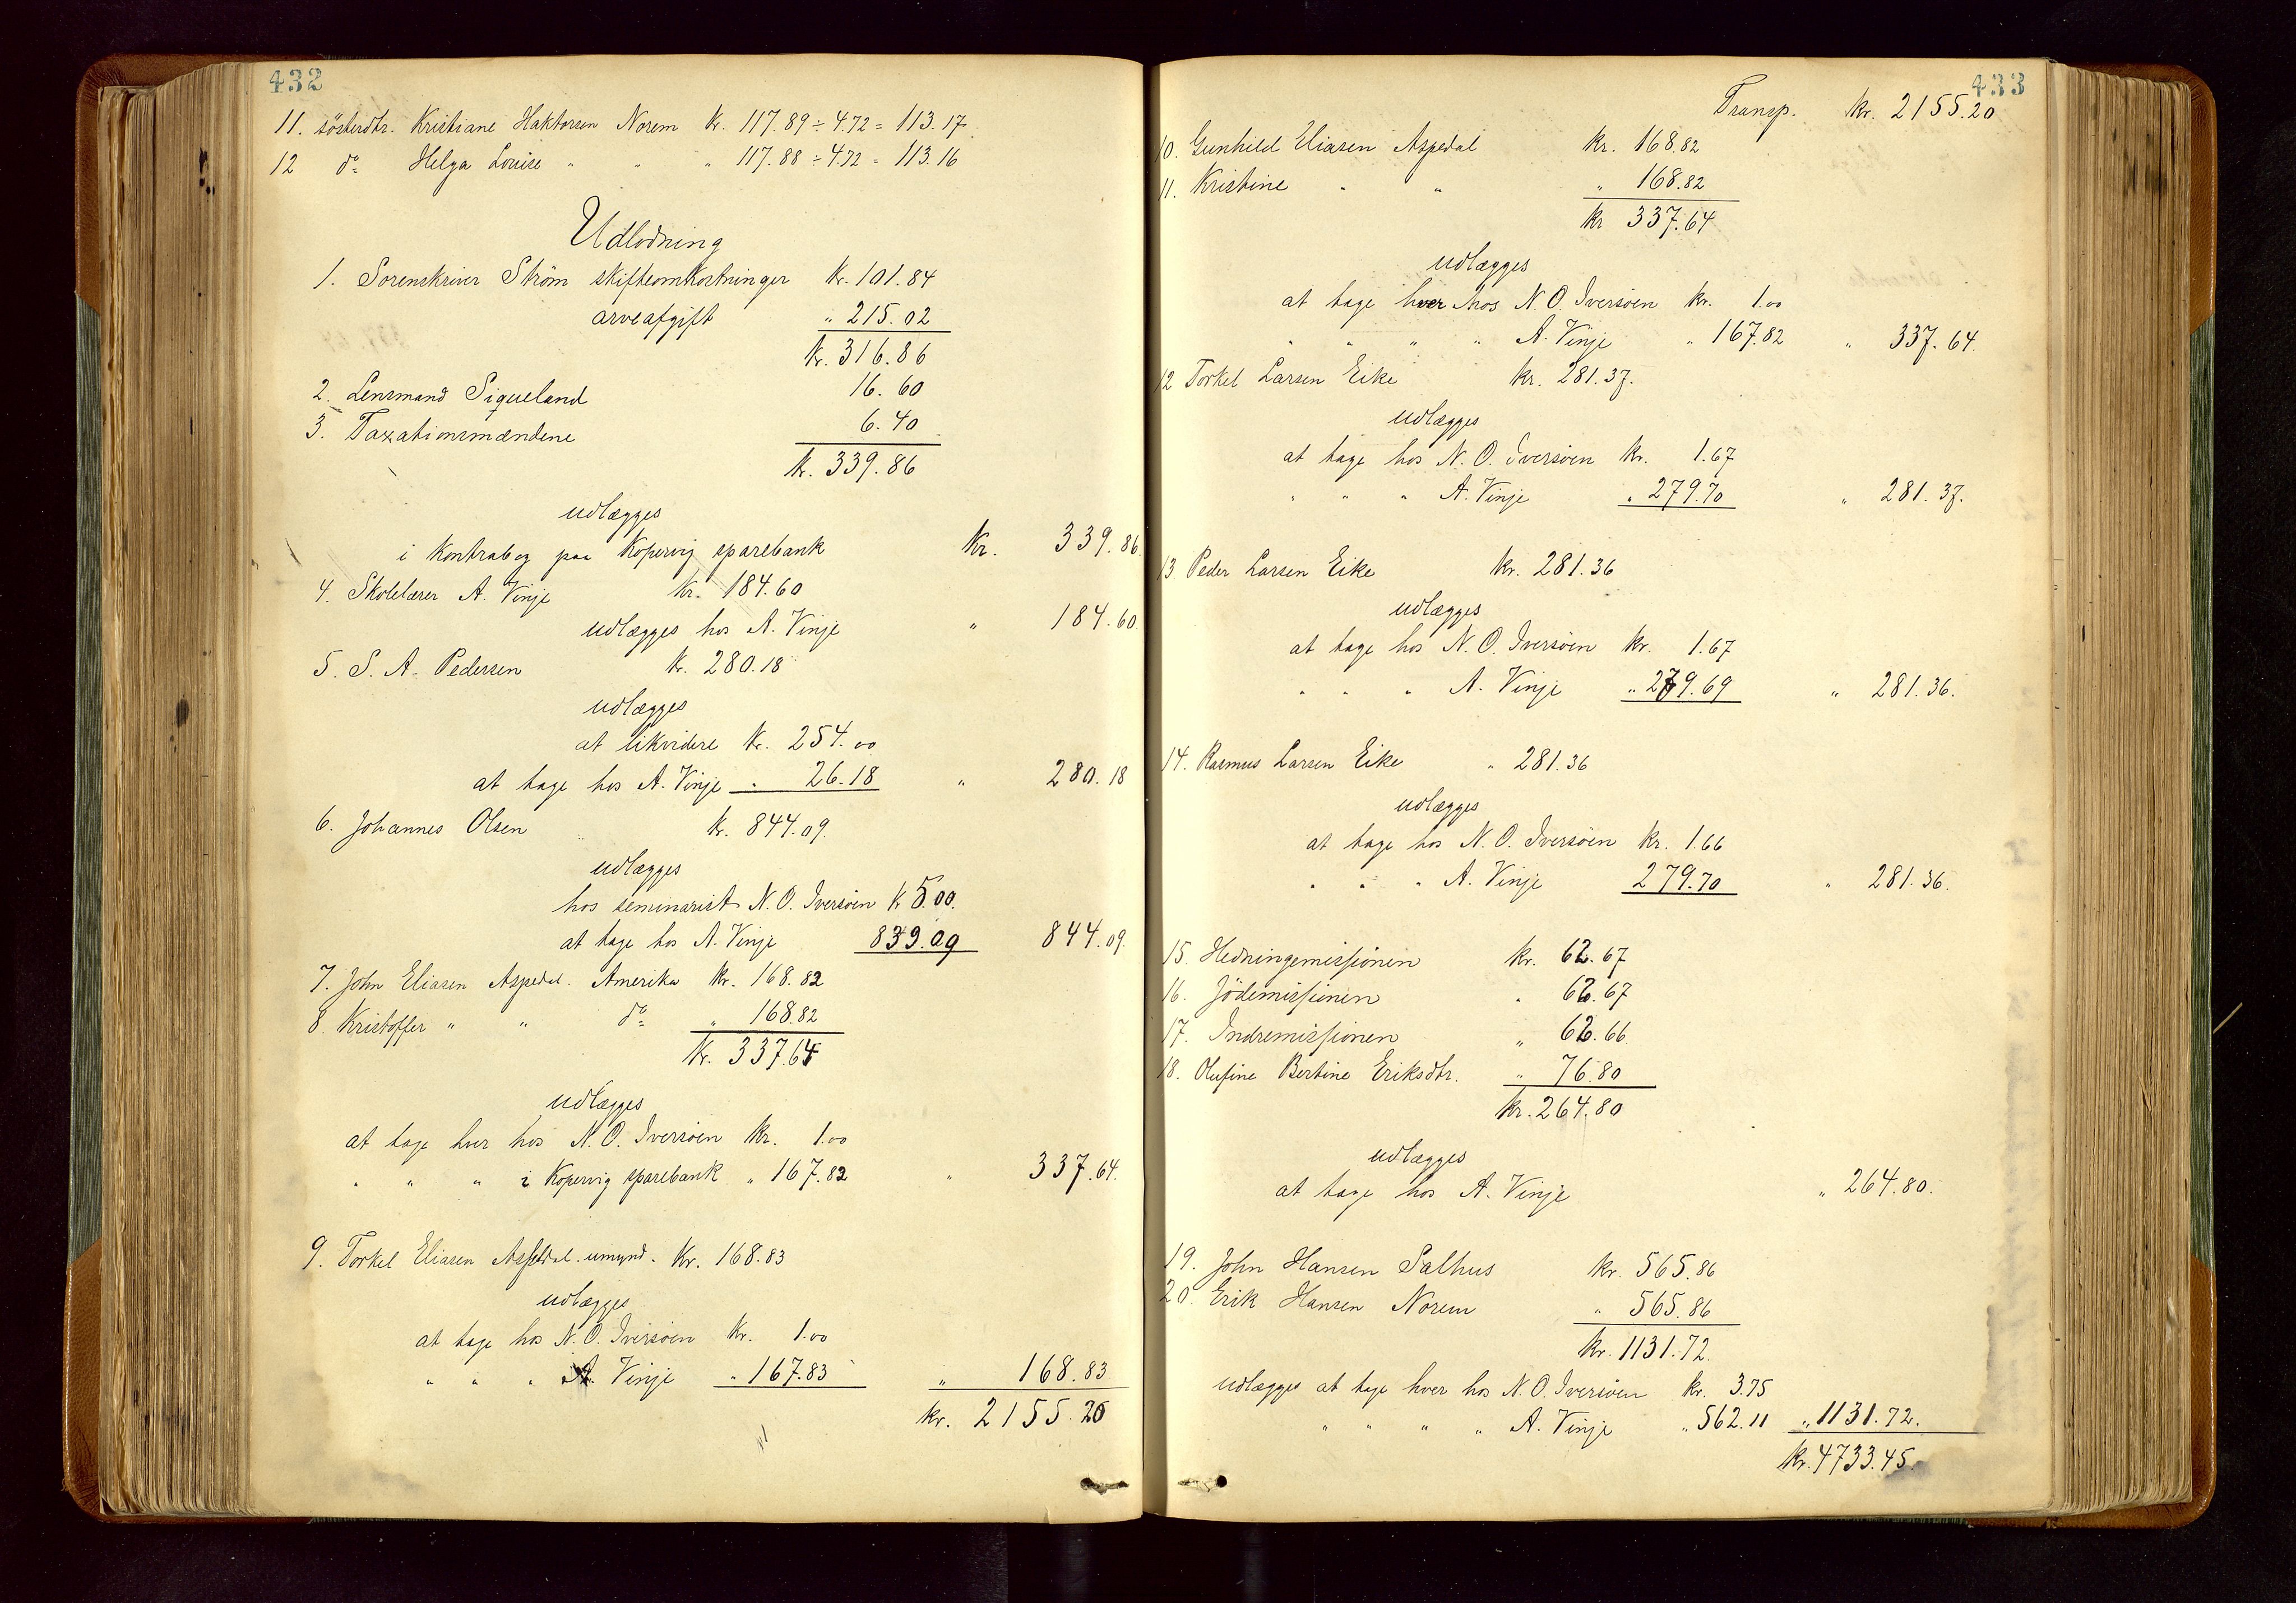 432
11. sösterdtr. Kristiane Haktorsen Norem Kr. 117.89 ÷ 4.72 = 113.17
12 do Helga Louise " " " 117.88 ÷ 4.72 = 113.16
Udlodning
1. Sorenskriver Ström skifteomkostninger Kr. 101.84
arveafgift " 215.02
Kr. 316.86
2. Lensmand Siqueland 16.60
3. Taxationsmændene 6.40
Kr. 339.86
udlægges
i Kontrabog paa Kopervig sparebank Kr. 339.86
4. Skolelærer A. Vinje Kr. 184.60
udlægges hos A. Vinje " 184.60
5. S. A. Pedersen Kr. 280.18
udlægges
at likvidere Kr. 254.00
at tage hos A. Vinje " 26.18 " 280.18
6. Johannes Olsen Kr. 844.09
udlægges
hos seminarist N. O. Iversöen Kr 5.00.
at tage hos A. Vinje 839.09 844.09.
7. John Eliasen Aspedal. Amerika Kr. 168.82
8. Kristoffer " " do " 168.82
Kr. 337.64
udlægges
at tage hver hos N. O. Iversöen Kr. 1.00
" " " i Kopervig sparebank " 167.82 " 337.64.
9. Torkel Eliasen Aspedal. umynd. Kr. 168.83
udlægges
at tage hos N. O. Iversöen Kr. 1.00
" " " A. Vinje " 167.83 " 168.83
Kr. 2155.20
433
Transp. Kr. 2155.20
10. Gunhild Eliasen Aspedal Kr. 168.82
11. Kristine " " " 168.82
Kr 337.64
udlægges
at tage hver hos N. O. Iversöen Kr. 1.00
" " " " A. Vinje " 167.82 " 337.64.
12 Torkel Larsen Eike Kr. 281.37.
udlægges
at tage hos N. O. Iversöen Kr. 1.67
" " " A. Vinje " 279.70 " 281.37.
13. Peder Larsen Eike Kr. 281.36
udlægges
at tage hos N. O. Iversöen Kr. 1.67
" " " A. Vinje " 279.69 " 281.36.
14. Rasmus Larsen Eike " 281.36
udlægges
at tage hos N. O. Iversöen Kr. 1.66
" " " A. Vinje 279.70 " 281.36.
15. Hedningemissionen Kr. 62.67
16. Jödemissionen " 62.67
17. Indremissionen " 62.66
18. Olufine Bertine Eriksdtr. " 76.80
Kr. 264.80
udlægges
at tage hos A. Vinje " 264.80.
19. John Hansen Salhus Kr. 565.86
20. Erik Hansen Norem " 565.86
Kr. 1131.72.
udlægges at tage hver hos N. O. Iversöen Kr. 3.75
" " " " A. Vinje " 562.11 " 1131.72.
Kr. 4733.45.